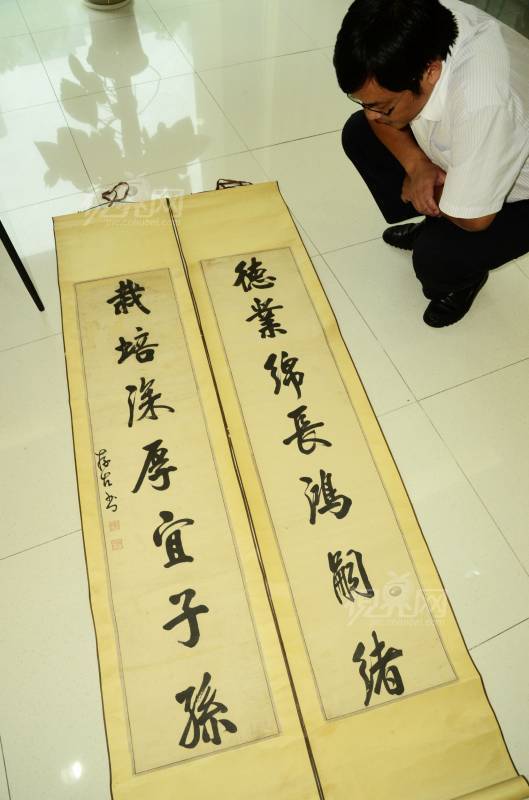 德業綿長鴻嗣緒
栽培深厚宜子孫